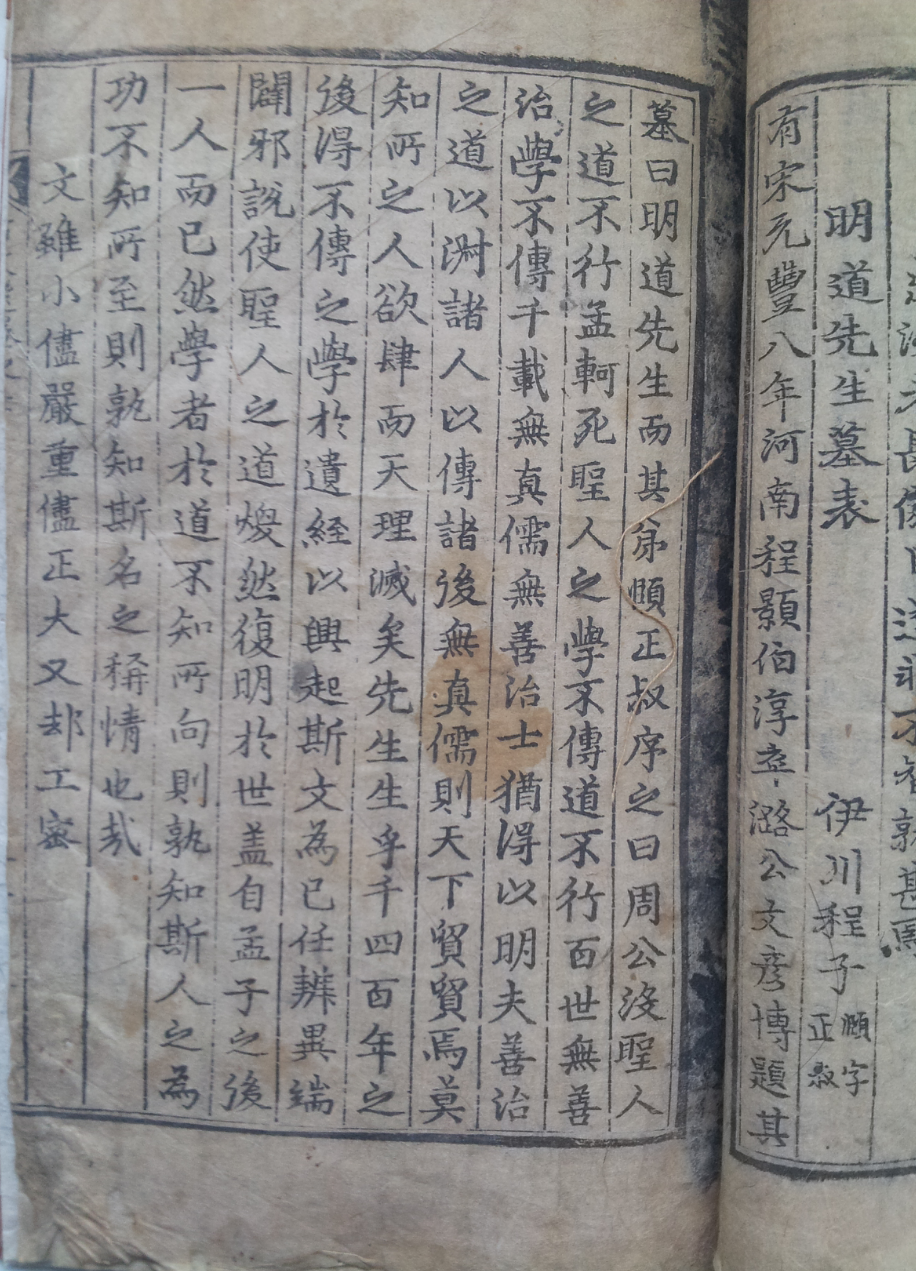 明道先生墓表 伊川程子 頤字正叔
有宋元豐八年河南程顥伯淳卒潞公文彥博題其
墓曰明道先生而其弟頤正叔序之曰周公沒聖人
之道不行孟軻死聖人之學不傳道不行百世無善
治學不傳千載無真儒無善治士猶得以明夫善治
之道以淑諸人以傳諸後無真儒則天下貿貿焉莫
知所之人欲肆而天理滅矣先生生乎千四百年之
後得不傳之學於遺經以興起斯文為已任辨異端
闢邪說使聖人之道煥然復明於世盖自孟子之後
一人而已然學者於道不知所向則孰知斯人之為
功不知所至則孰知斯名之稱情也哉
文雖小儘嚴重儘正大又却工密